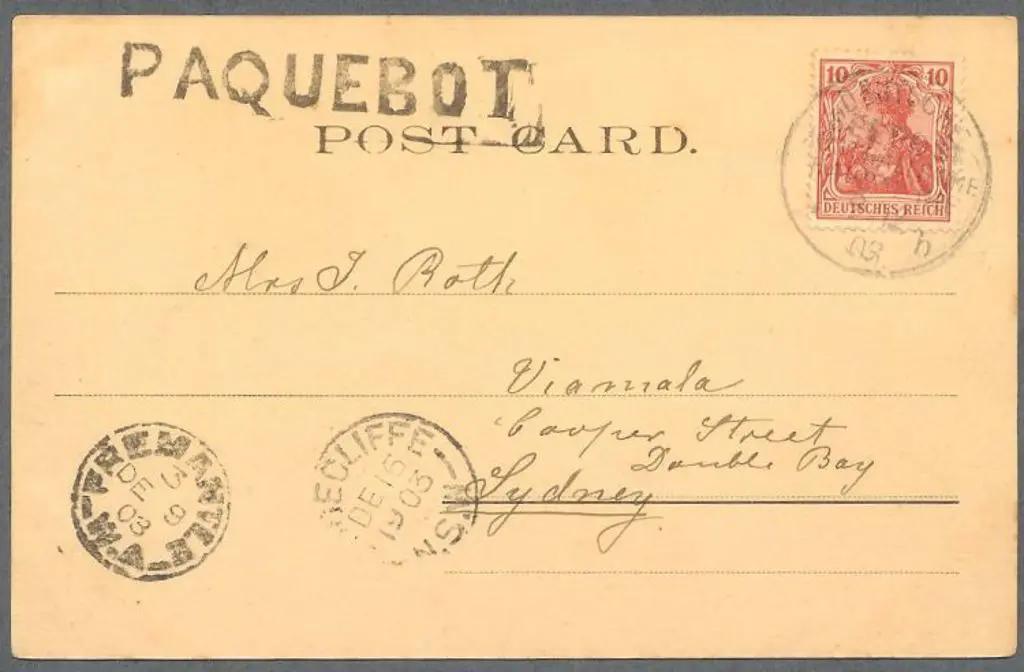 PAQUEBOT
POST CARD.
10 10
DEUTSCHES REICH
03 b
Mrs J. Roth
Viamala
Cooper Street
Double Bay
Sydney
FREMANTLE
DE
03
W.A
ECLIFFE N.S.W
DE 16
1903